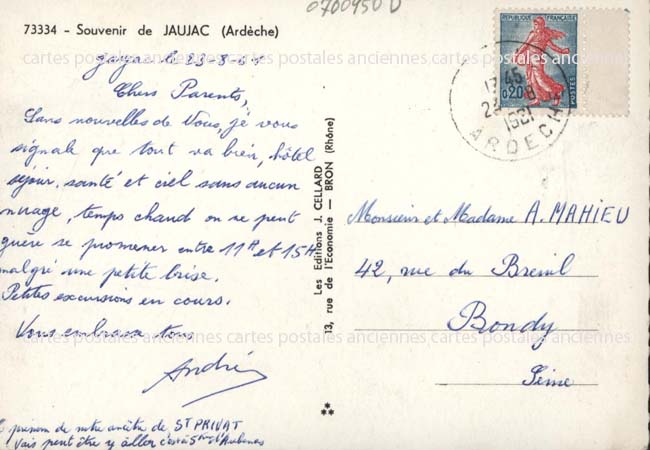 0700950 D
73334 - Souvenir de JAUJAC (Ardèche)
Jaujac le 23-8-61
Chers Parents,
Sans nouvelles de Vous, je vous
signale que tout va bien, hôtel
séjour, santé et ciel sans aucun
nuage, temps chaud on ne peut
guère se promener entre 11H et 15H
malgré une petite brise.
Petites excursions en cours.
Vous embrasse tous
André
P prénom de notre ancêtre de ST PRIVAT
Vais peut être y aller c'est à 5km d'Aubenas
Les Editions J. CELLARD
13, rue de l'Economie — BRON (Rhône)
REPUBLIQUE FRANÇAISE
0,20
POSTES
1745
1961
ARDECHE
Monsieur et Madame A. MAHIEU
42, rue du Breuil
Bondy
Seine
cartes postales anciennes cartes postales anciennes cartes postales anciennes
cartes postales anciennes cartes postales anciennes cartes postales anciennes
cartes postales anciennes cartes postales anciennes cartes postales anciennes